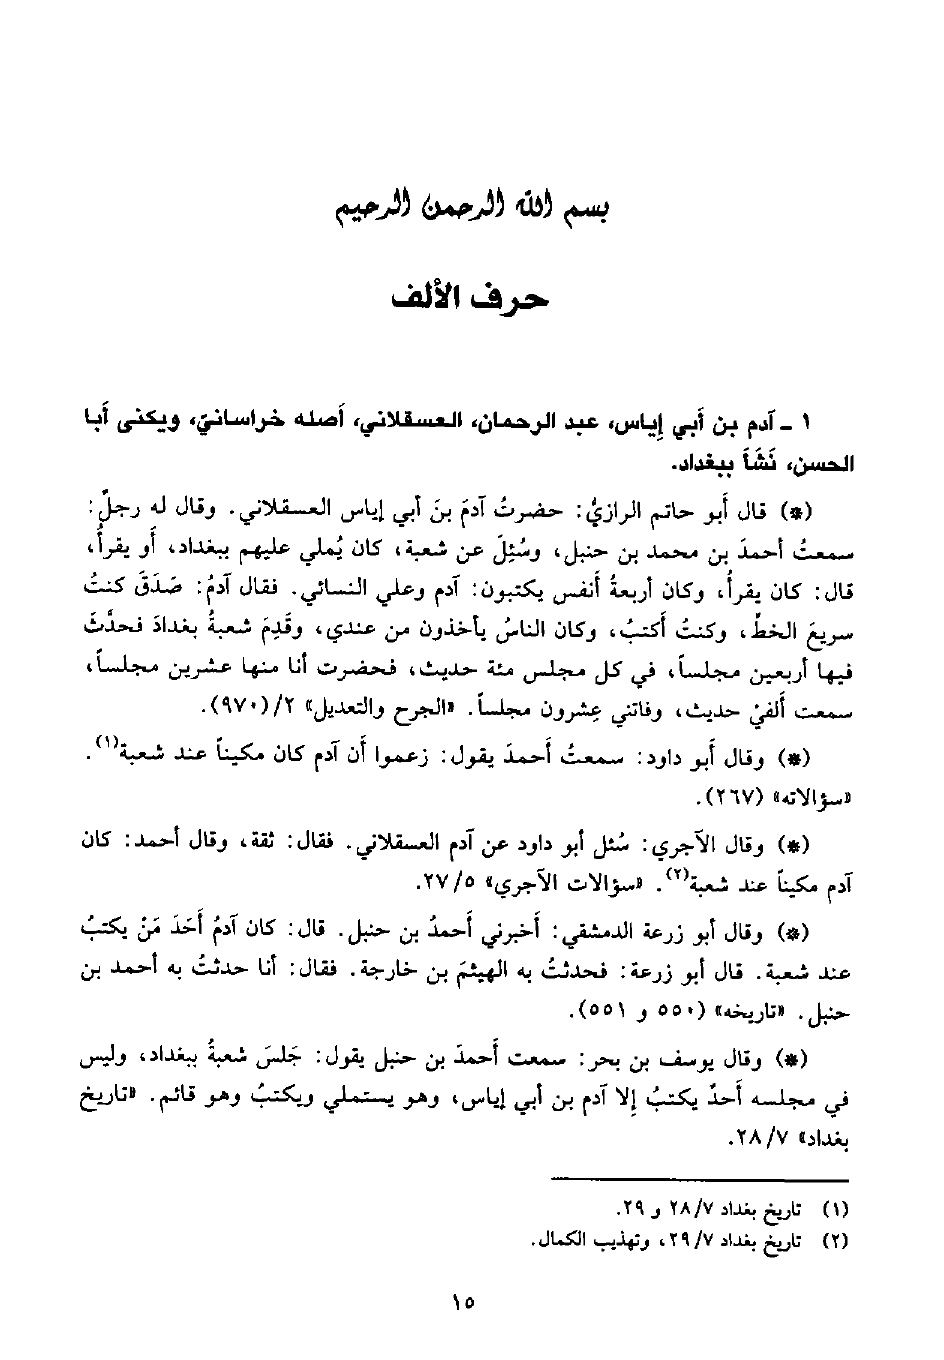 بسم الله الرحمن الرحيم
حرف الألف
١ ـ آدم بن أبي إياس، عبد الرحمان، العسقلاني، أصله خراسانيّ، ويكنى أبا
الحسن، نَشَأ ببغداد.
(*) قال أبو حاتم الرازيُّ: حضرتُ آدمَ بنَ أبي إياس العسقلاني. وقال له رجلٌ:
سمعتُ أحمدَ بن محمد بن حنبل، وسُئِلَ عن شعبة، كان يُملي عليهم ببغداد، أو يقرأ،
قال: كان يقرأُ، وكان أربعةُ أنفس يكتبون: آدم وعلي النسائي. فقال آدمُ: صَدَقَ كنتُ
سريعَ الخطِّ، وكنتُ أكتبُ، وكان الناسُ يأخذون من عندي، وقَدِمَ شعبةُ بغدادَ فحدَّثَ
فيها أربعين مجلساً، في كل مجلس مئة حديث، فحضرت أنا منها عشرين مجلساً،
سمعت ألفيْ حديث، وفاتني عِشرون مجلساً. «الجرح والتعديل» ٢/(٩٧٠).
(*) وقال أبو داود: سمعتُ أحمدَ يقول: زعموا أن آدم كان مكيناً عند شعبة(١).
«سؤالاته» (٢٦٧).
(*) وقال الآجري: سُئل أبو داود عن آدم العسقلاني. فقال: ثقة، وقال أحمد: كان
آدم مكيناً عند شعبة(٢). «سؤالات الآجري» ٥/ ٢٧.
(*) وقال أبو زرعة الدمشقي: أخبرني أحمدُ بن حنبل. قال: كان آدمُ أَحَدَ مَنْ يكتبُ
عند شعبة. قال أبو زرعة: فحدثتُ به الهيثمَ بن خارجة. فقال: أنا حدثتُ به أحمد بن
حنبل. «تاريخه» (٥٥٠ و ٥٥١).
(*) وقال يوسف بن بحر: سمعت أحمدَ بن حنبل يقول: جَلسَ شعبةُ ببغداد، وليس
في مجلسه أَحدٌ يكتبُ إلا آدم بن أبي إياس، وهو يستملي ويكتبُ وهو قائم. «تاريخ
بغداد» ٧/ ٢٨.
(١) تاريخ بغداد ٧/ ٢٨ و ٢٩.
(٢) تاريخ بغداد ٧/ ٢٩، وتهذيب الكمال.
١٥